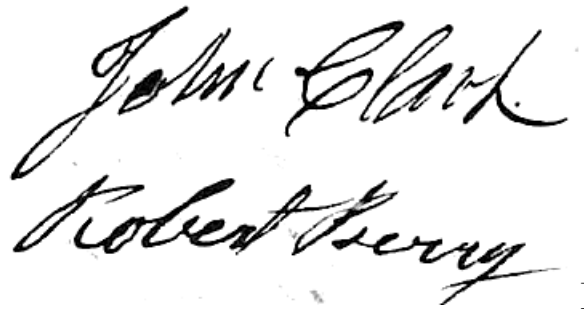 John Clark
Robert Berry